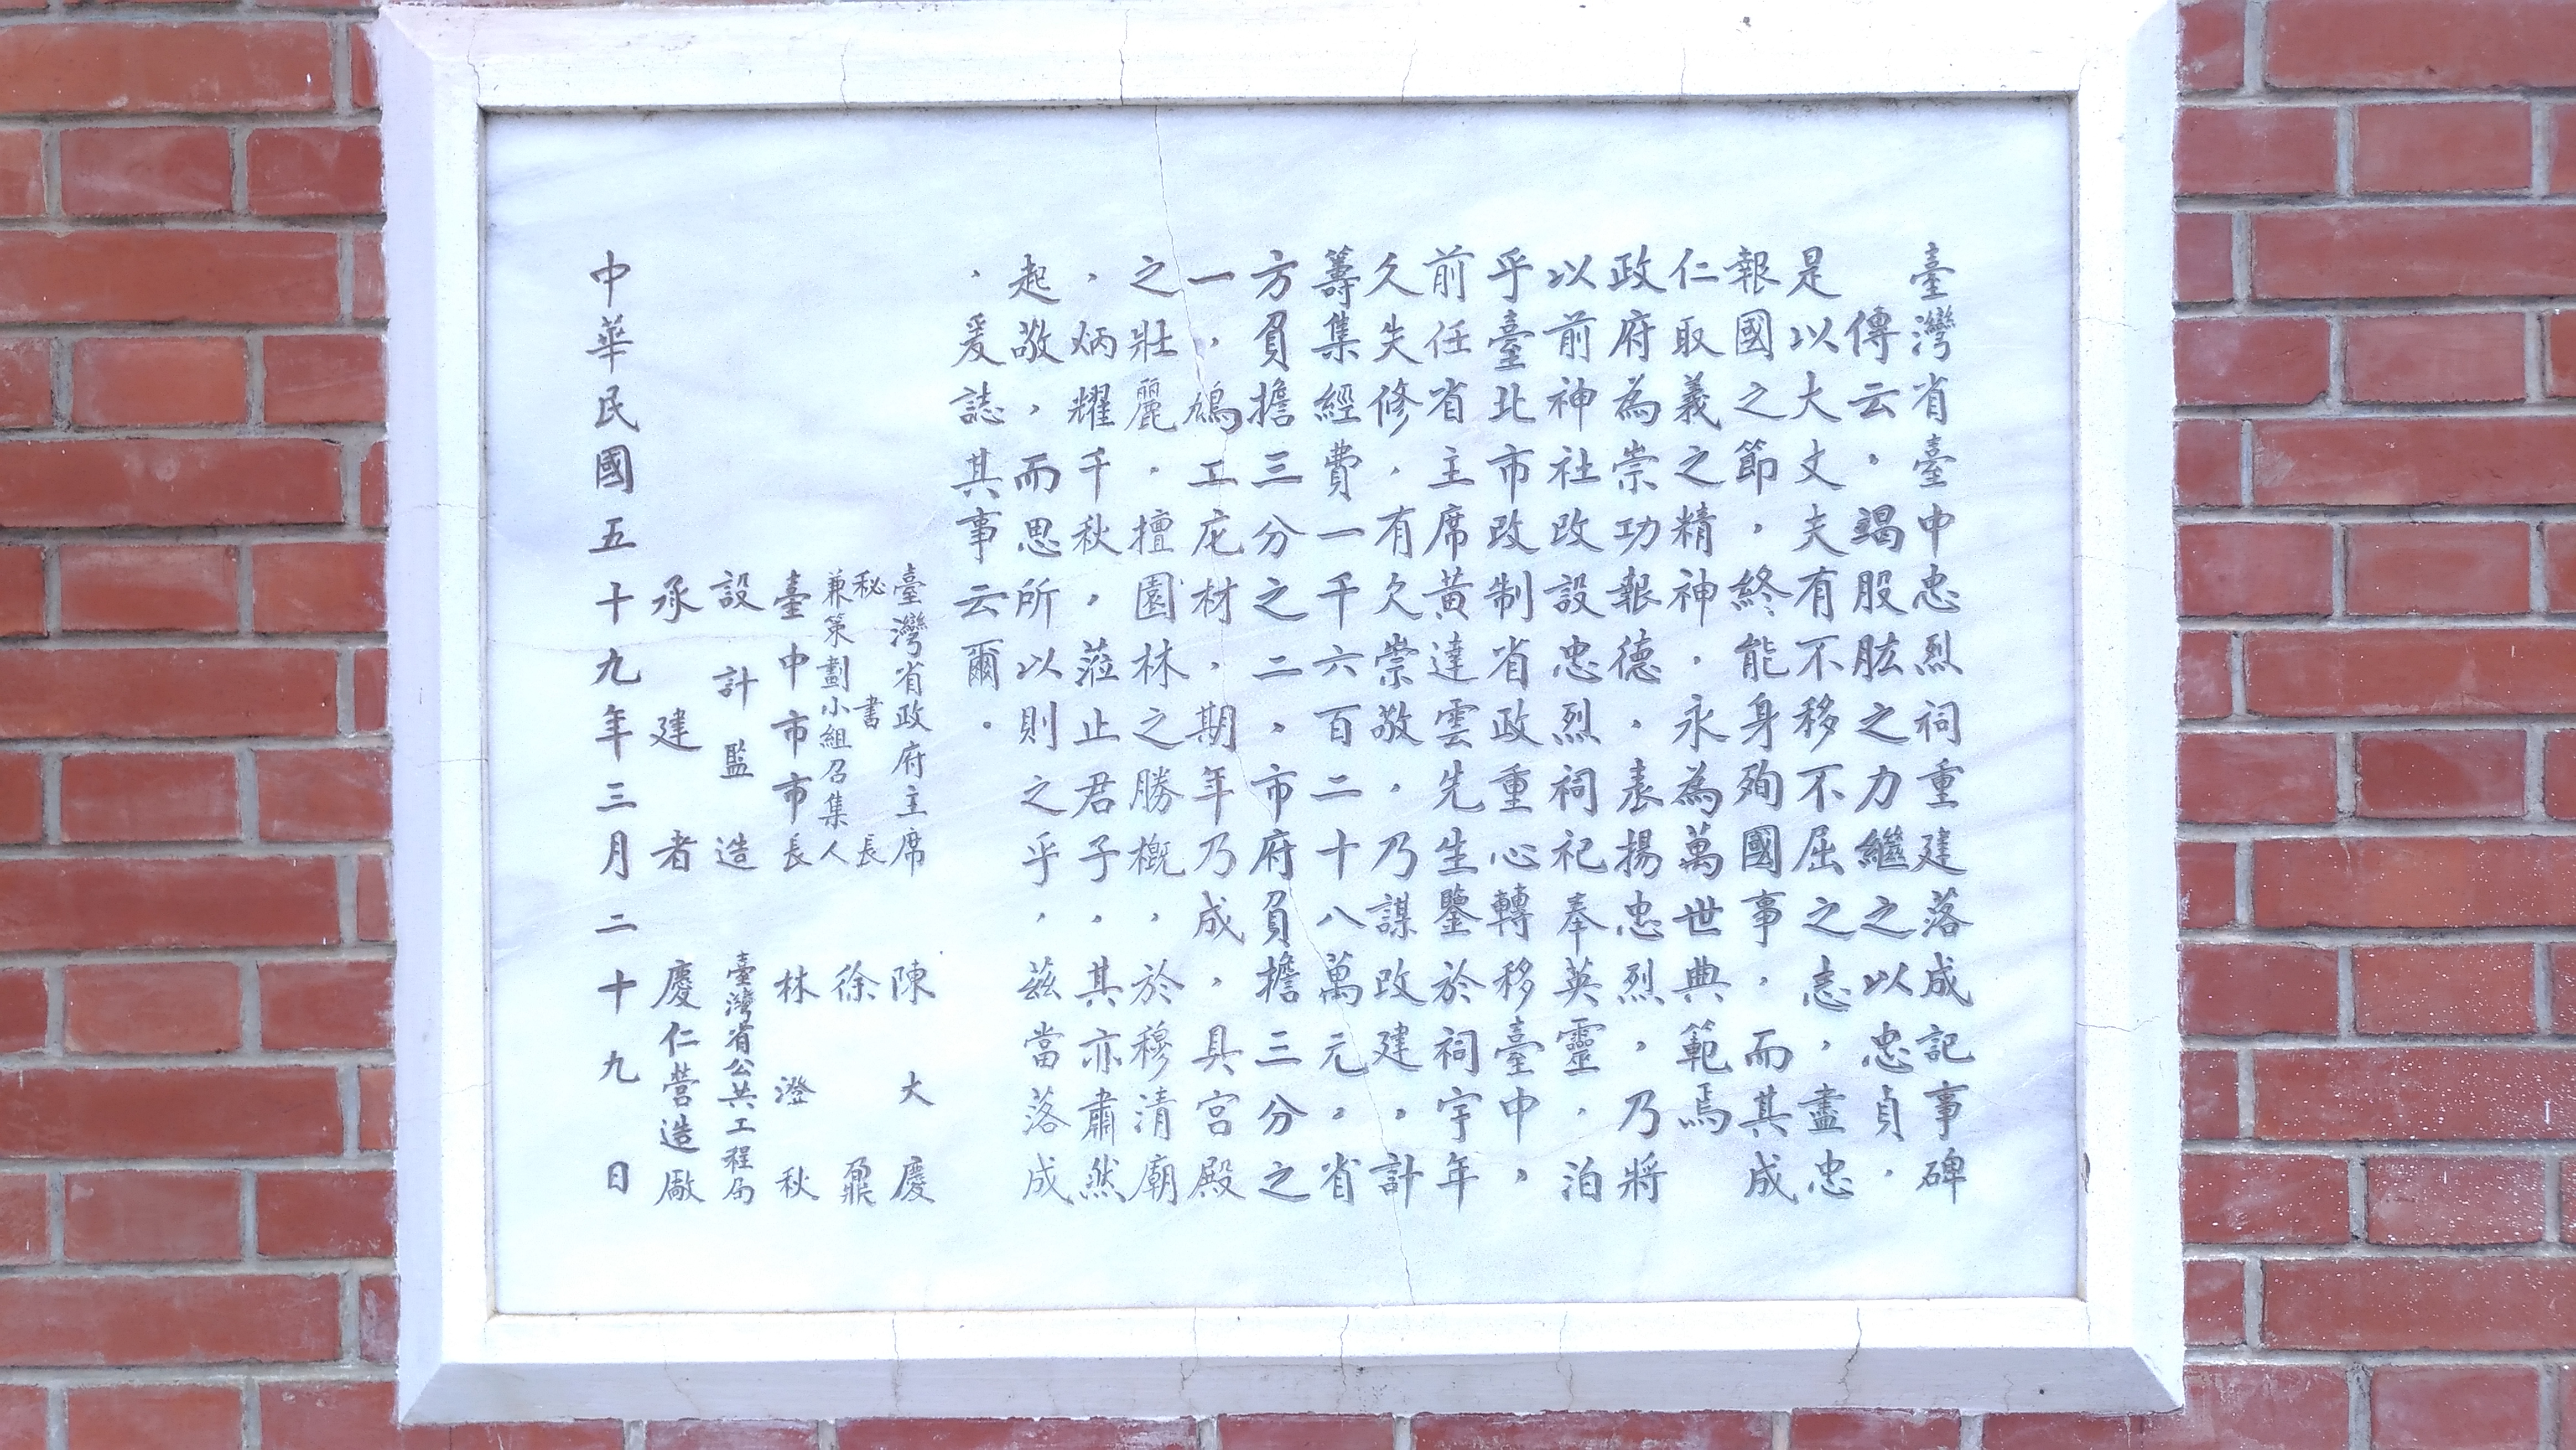 臺灣省臺中忠烈祠重建落成記事碑
傳云，竭股肱之力繼之以忠貞，
是以大丈夫有不移不屈之志，盡忠
報國之節，終能身殉國事，而其成
仁取義之精神，永為萬世典範焉
政府為崇功報德，表揚忠烈，乃將
以前神社改設忠烈祠祀奉英靈，洎
乎臺北市改制省政重心轉移臺中，
前任省主席黃達雲先生鑒於祠宇年
久失修，有欠崇敬，乃謀改建，計
籌集經費一千六百二十八萬元，省
方負擔三分之二，市府負擔三分之
一，鳩工庀材，期年乃成，具宮殿
之壯麗，擅園林之勝概，於穆清廟
，炳耀千秋，蒞止君子，其亦肅然
起敬，而思所以則之乎，茲當落成
，爰誌其事云爾。
臺灣省政府主席 陳大慶
秘書長
兼策劃小組召集人 徐鼐
臺中市市長 林澄秋
設計監造 臺灣省公共工程局
承建者 慶仁營造廠
中華民國五十九年三月二十九日